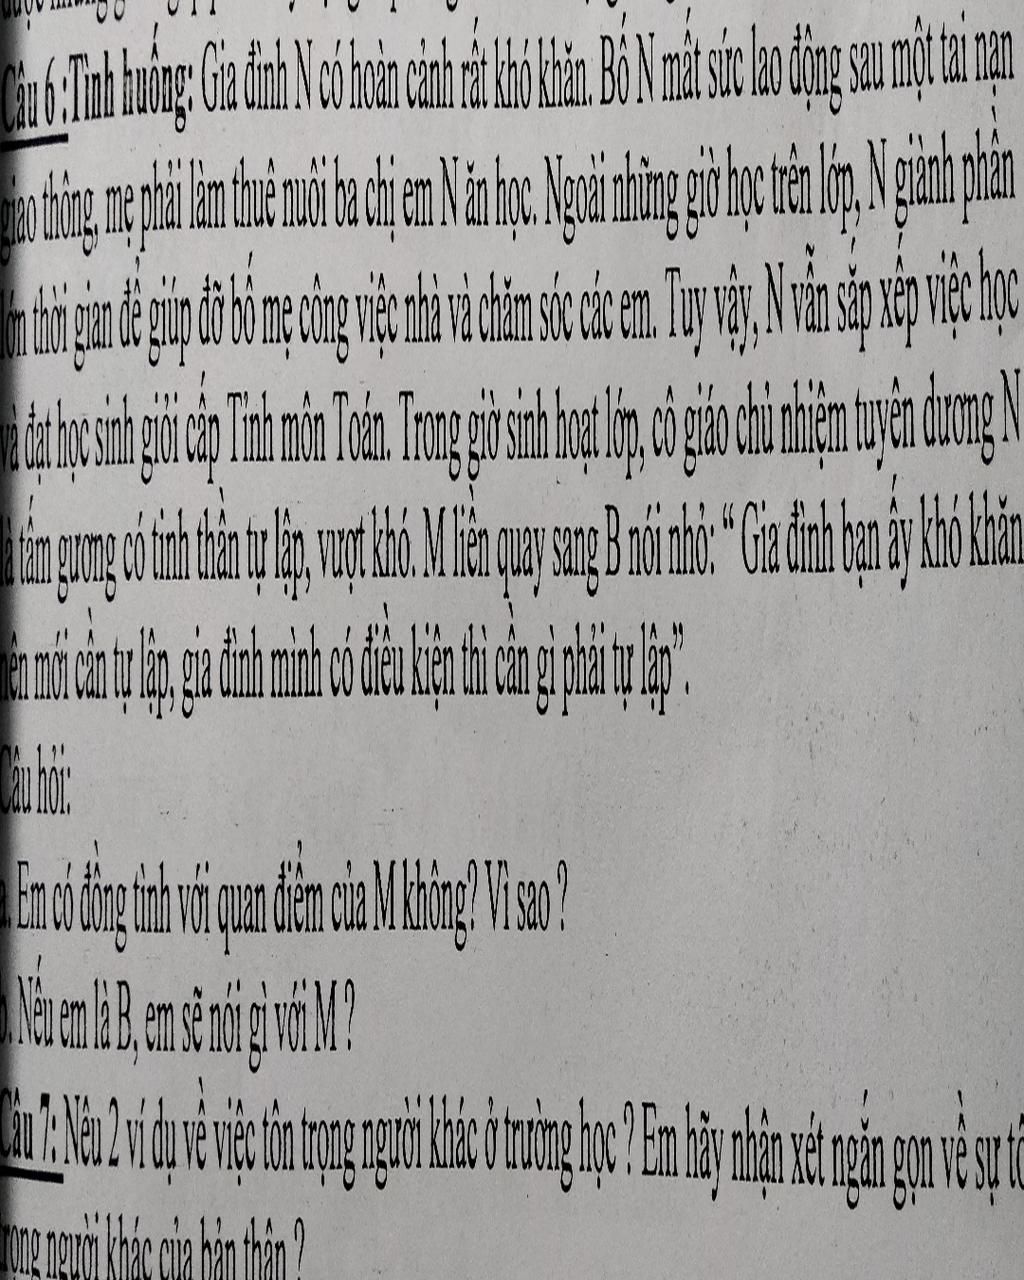 được những
Câu 6 :Tình huống: Gia đình N có hoàn cảnh rất khó khăn. Bố N mất sức lao động sau một tai nạn
giao thông, mẹ phải làm thuê nuôi ba chị em N ăn học. Ngoài những giờ học trên lớp, N giành phần
lớn thời gian để giúp đỡ bố mẹ công việc nhà và chăm sóc các em. Tuy vậy, N vẫn sắp xếp việc học
và đạt học sinh giỏi cấp Tỉnh môn Toán. Trong giờ sinh hoạt lớp, cô giáo chủ nhiệm tuyên dương N
là tấm gương có tinh thần tự lập, vượt khó. M liền quay sang B nói nhỏ: “ Gia đình bạn ấy khó khăn
nên mới cần tự lập, gia đình mình có điều kiện thì cần gì phải tự lập”.
Câu hỏi:
a. Em có đồng tình với quan điểm của M không? Vì sao ?
b. Nếu em là B, em sẽ nói gì với M ?
Câu 7: Nêu 2 ví dụ về việc tôn trọng người khác ở trường học ? Em hãy nhận xét ngắn gọn về sự tô
trọng người khác của bản thân ?